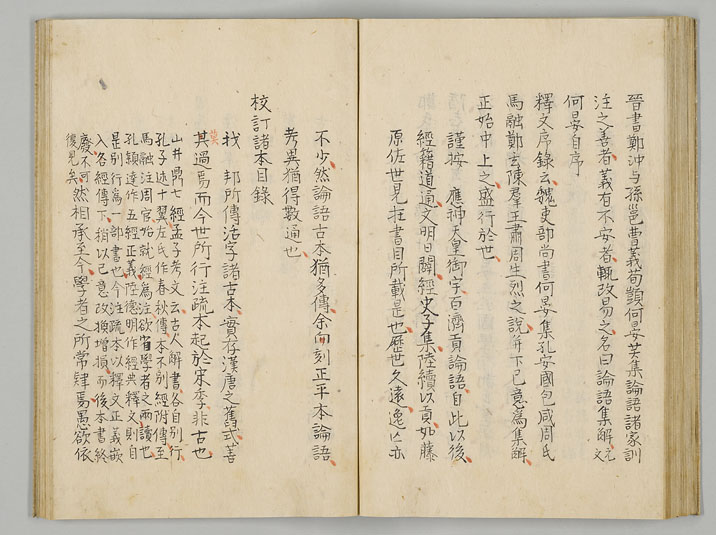 晉書鄭沖与孫邕曹羲荀顗何晏共集論語諸家訓
注之善者義有不安者輒改易之名曰論語集解
何晏自序
釋文序錄云魏吏部尚書何晏集孔安國包咸周氏
馬融鄭玄陳羣王肅周生烈之說并下己意為集解
正始中上之盛行於世
謹按應神天皇御宇百濟貢論語自此以後
經籍道通文明日闢經史子集陸續以貢如藤
原佐世見在書目所載是也歷世久遠逸亡亦
不少然論語古本猶多傳余向刻正平本論語
考異猶得數通也
校訂諸本目錄
我邦所傳活字諸古本實存漢唐之舊式善
莫
其過焉而今世所行注疏本起於宋季非古也
山井鼎七經孟子考文云古人解書各自別行
孔子述十翼左氏作春秋傳本不別經附傳至
馬融注周官始就經為注欲省學者之兩讀也
孔穎達作五經正義陸德明作經典釋文則自
是別行為一部書也今注疏本以釋文正義嵌
入各經傳下稍以己意改換增損而後本書終
廢不可
復見矣
然相承至今學者之所常肄焉愚欲依